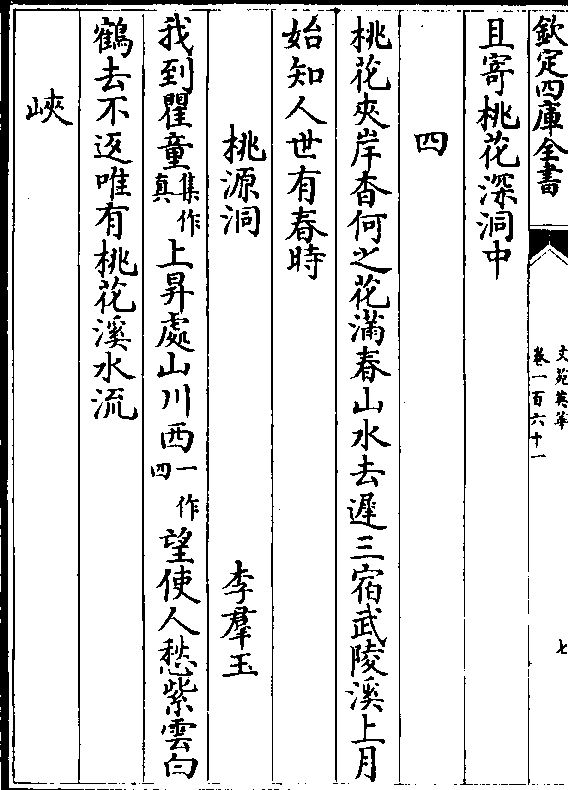 欽定四庫全書
文苑英華
卷一百六十一
七
且寄桃花深洞中
四
桃花夾岸杳何之花滿春山水去遲三宿武陵溪上月
始知人世有春時
桃源洞 李羣玉
我到瞿童集作真上昇處山川西一作四望使人愁紫雲白
鶴去不返唯有桃花溪水流
峽